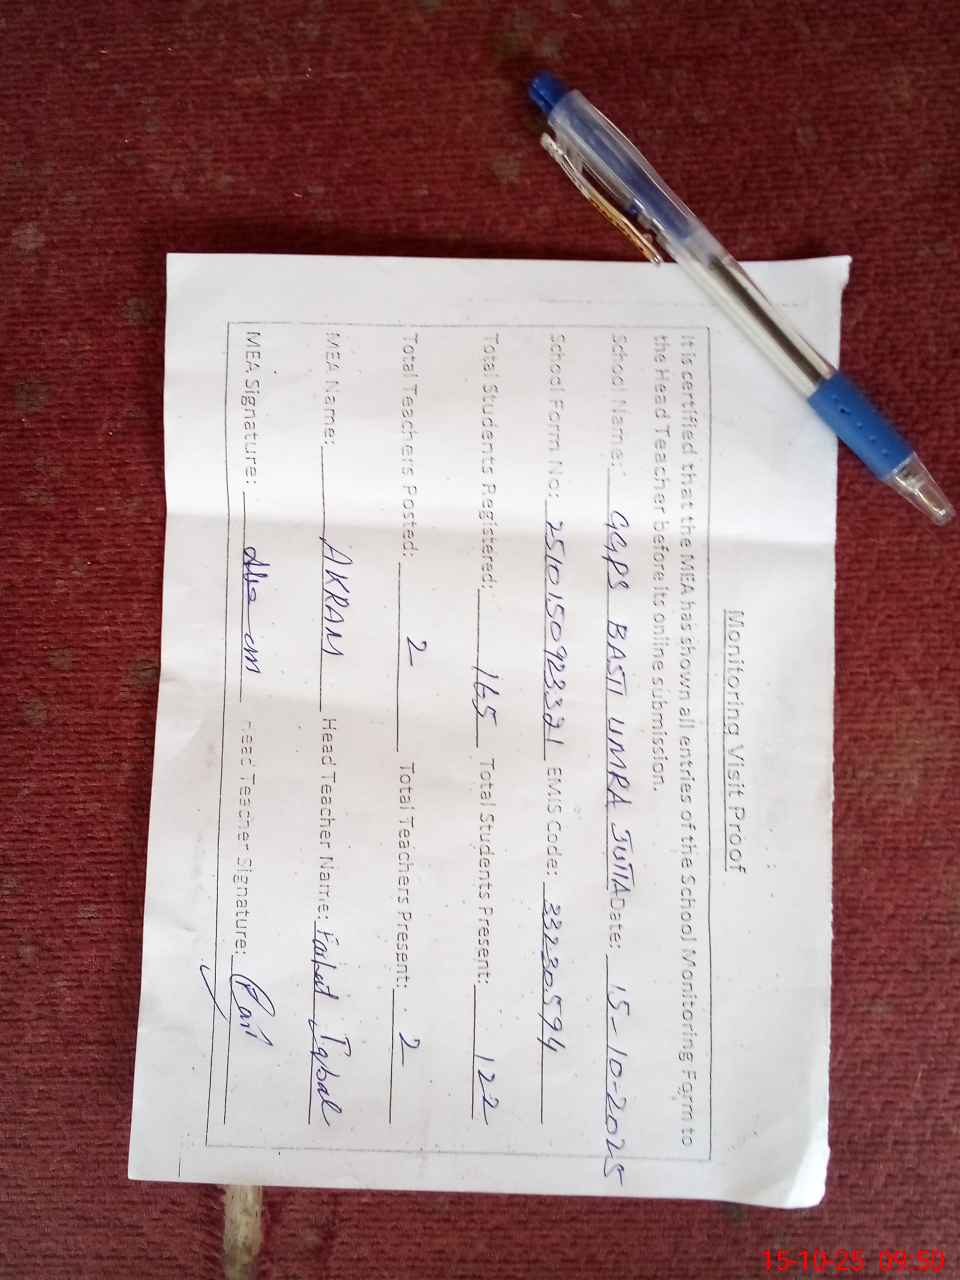 Monitoring Visit Proof
It is certified that the MEA has shown all entries of the School Monitoring Form to
the Head Teacher before its online submission.
School Name: GGPS BASTI UMRA JUTTA Date: 15-10-2025
School Form No: 2510150923321 EMIS Code: 33230594
Total Students Registered: 165 Total Students Present: 122
Total Teachers Posted: 2 Total Teachers Present: 2
MEA Name: AKRAM Head Teacher Name: Farhat Iqbal
MEA Signature: Head Teacher Signature:
15-10-25 09:50